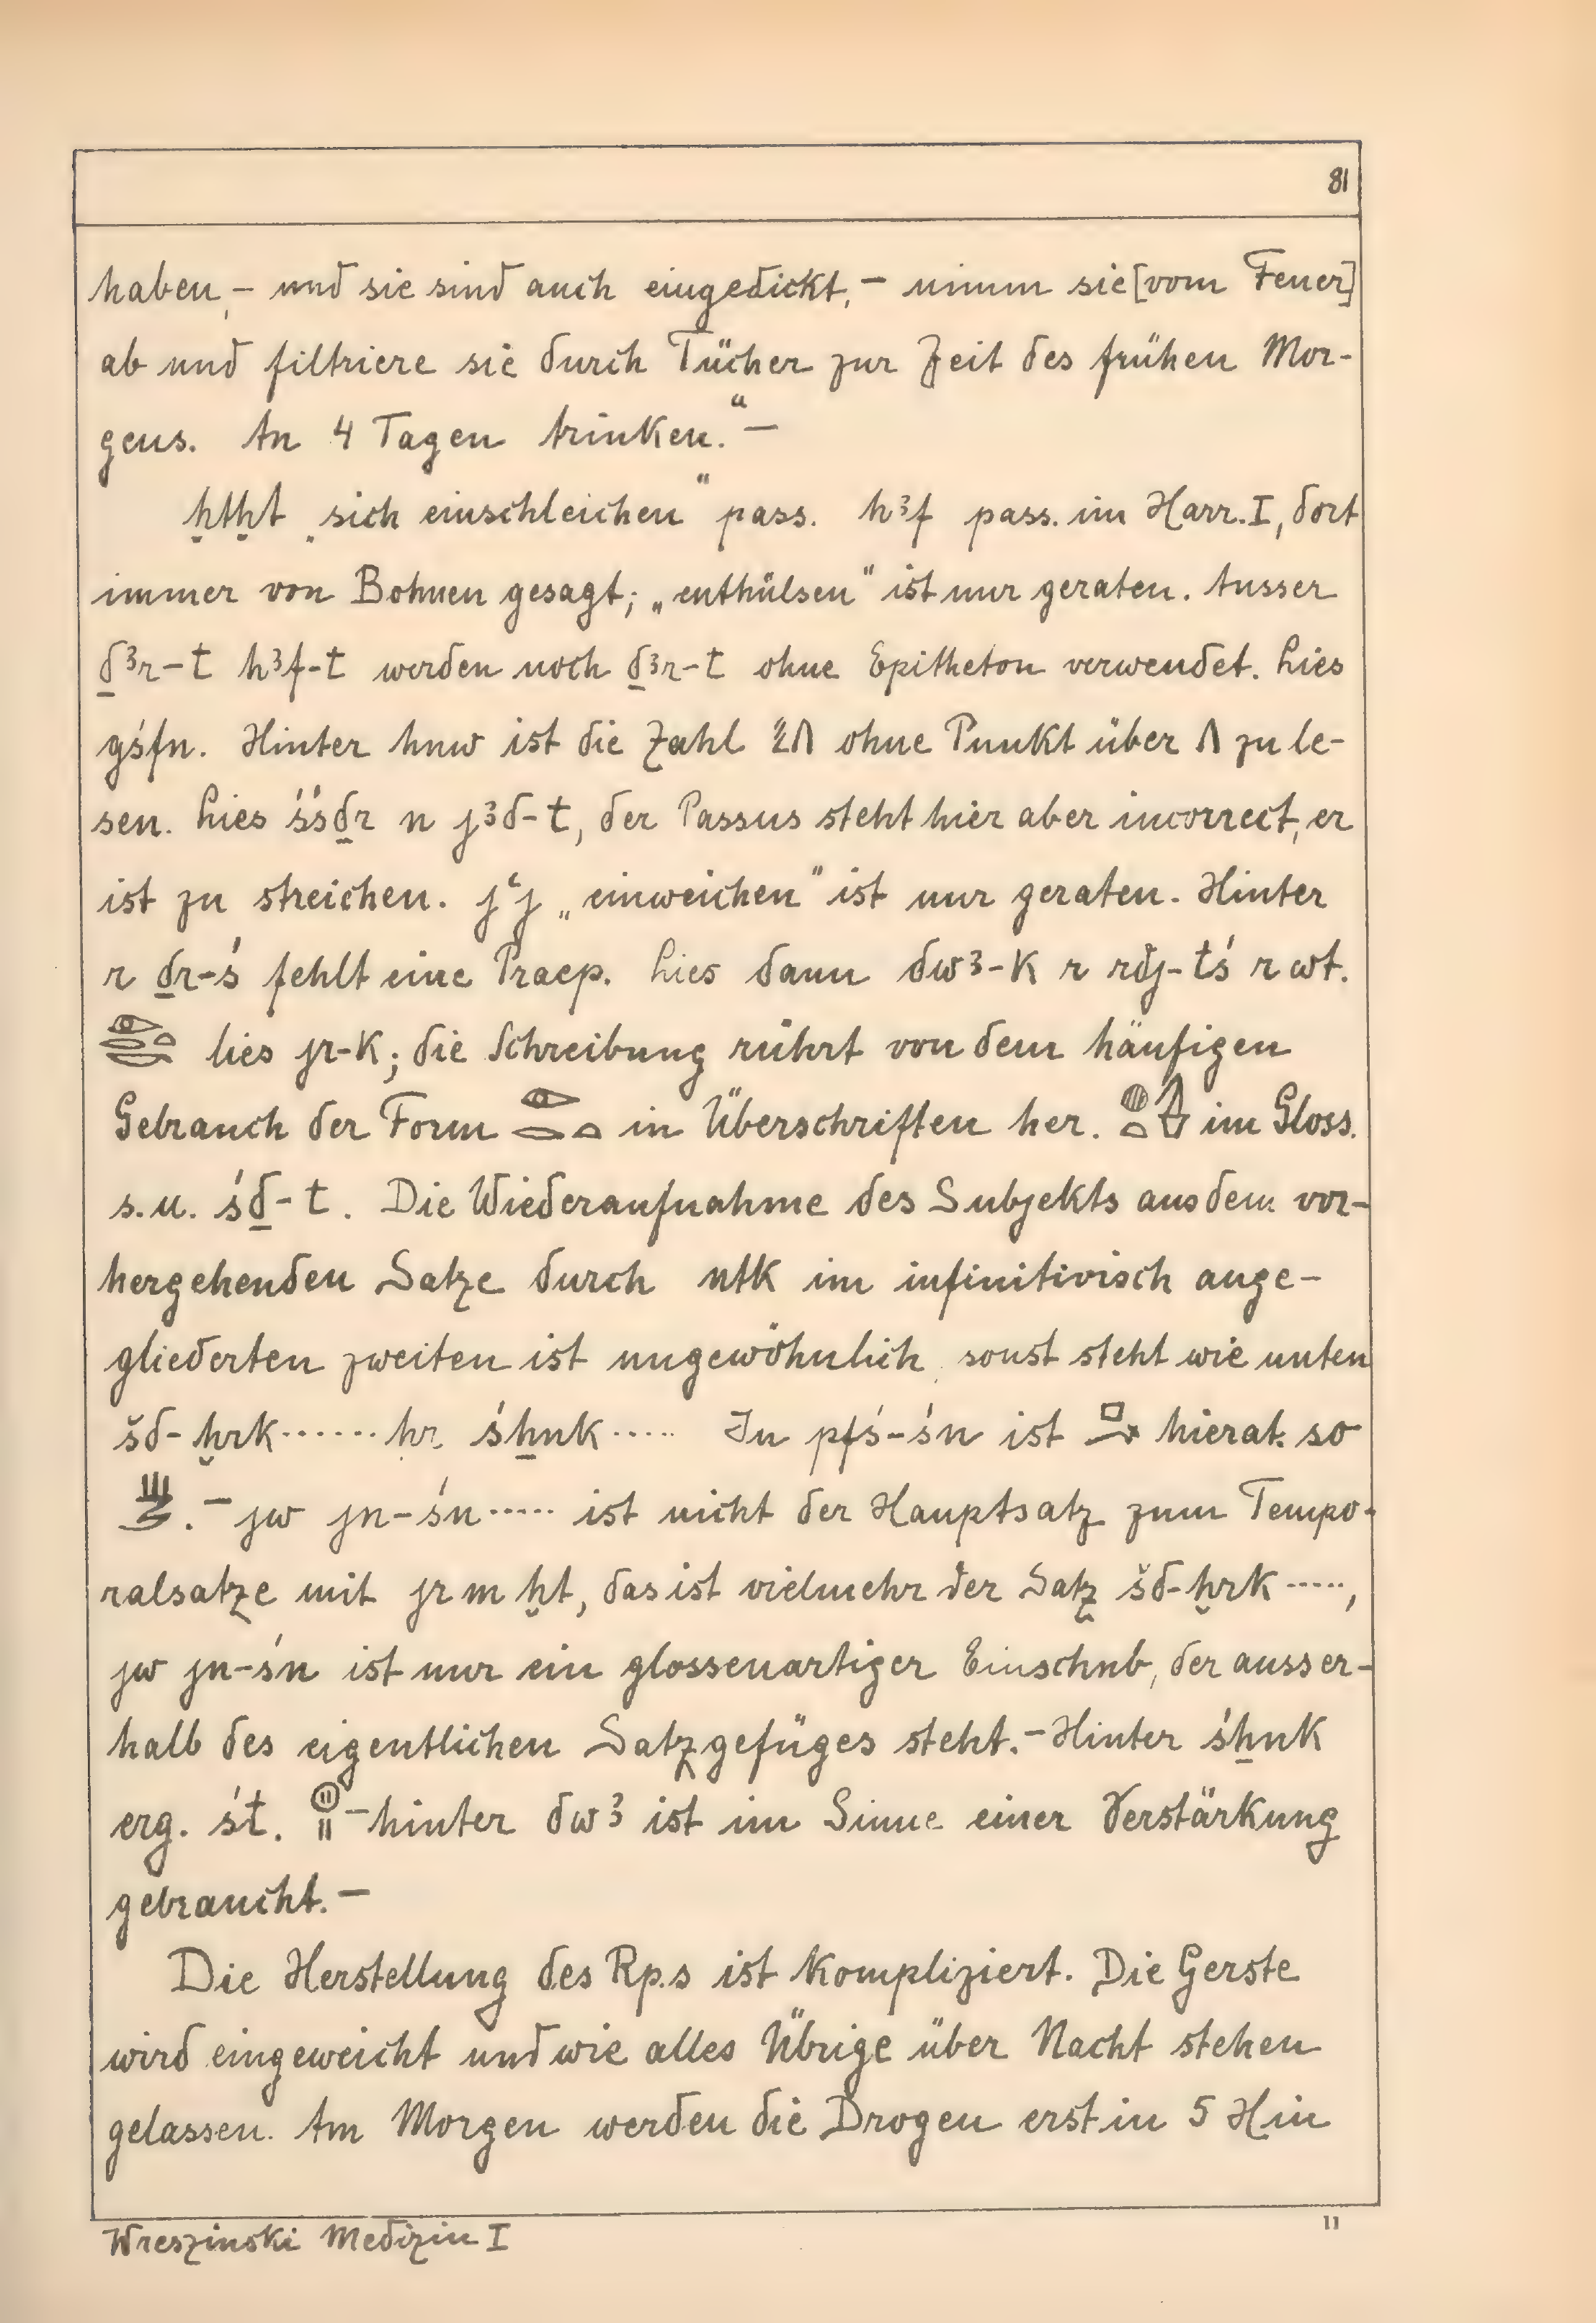 81
haben, – und sie sind auch eingedickt, – nimm sie [vom Feuer]
ab und filtriere sie durch Tücher zur Zeit des frühen Mor-
gens. An 4 Tagen trinken.“ –
ḫtḫt „sich einschleichen“ pass. hꜣf pass. im Harr. I, dort
immer von Bohnen gesagt; „enthülsen“ ist nur geraten. Ausser
ḏꜣr-t hꜣf-t werden noch ḏꜣr-t ohne Epitheton verwendet. Lies
gśfn. Hinter hnw ist die Zahl ohne Punkt über zu le-
sen. Lies śśḏr n jꜣd-t, der Passus steht hier aber incorrect, er
ist zu streichen. jꜥj „einweichen“ ist nur geraten. Hinter
r ḏr-ś fehlt eine Praep. Lies dann dwꜣ-k r rdj-tś r wt.
𓁹𓂋𓏏𓎡 lies jr-k; die Schreibung rührt von dem häufigen
Gebrauch der Form 𓁹𓂋𓏏 in Überschriften her. im Gloss.
s. u. śḏ-t. Die Wiederaufnahme des Subjekts aus dem vor-
hergehenden Satze durch ntk im infinitivisch ange-
gliederten zweiten ist ungewöhnlich, sonst steht wie unten
šd-ḫrk ...... ḥr śẖnk ..... In pfś-śn ist hierat. so
. – jw jn-śn ..... ist nicht der Hauptsatz zum Tempo-
ralsatze mit jr m ḫt, das ist vielmehr der Satz šd-ḫrk .....,
jw jn-śn ist nur ein glossenartiger Einschub, der ausser-
halb des eigentlichen Satzgefüges steht. – Hinter śẖnk
erg. śt. – hinter dwꜣ ist im Sinne einer Verstärkung
gebraucht. –
Die Herstellung des Rp.s ist kompliziert. Die Gerste
wird eingeweicht und wie alles Übrige über Nacht stehen
gelassen. Am Morgen werden die Drogen erst in 5 Hin
Wreszinski Medizin I
11